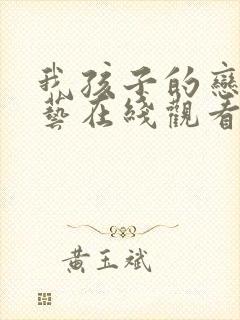 我孩子的戀
藝在綫觀看
黃玉斌